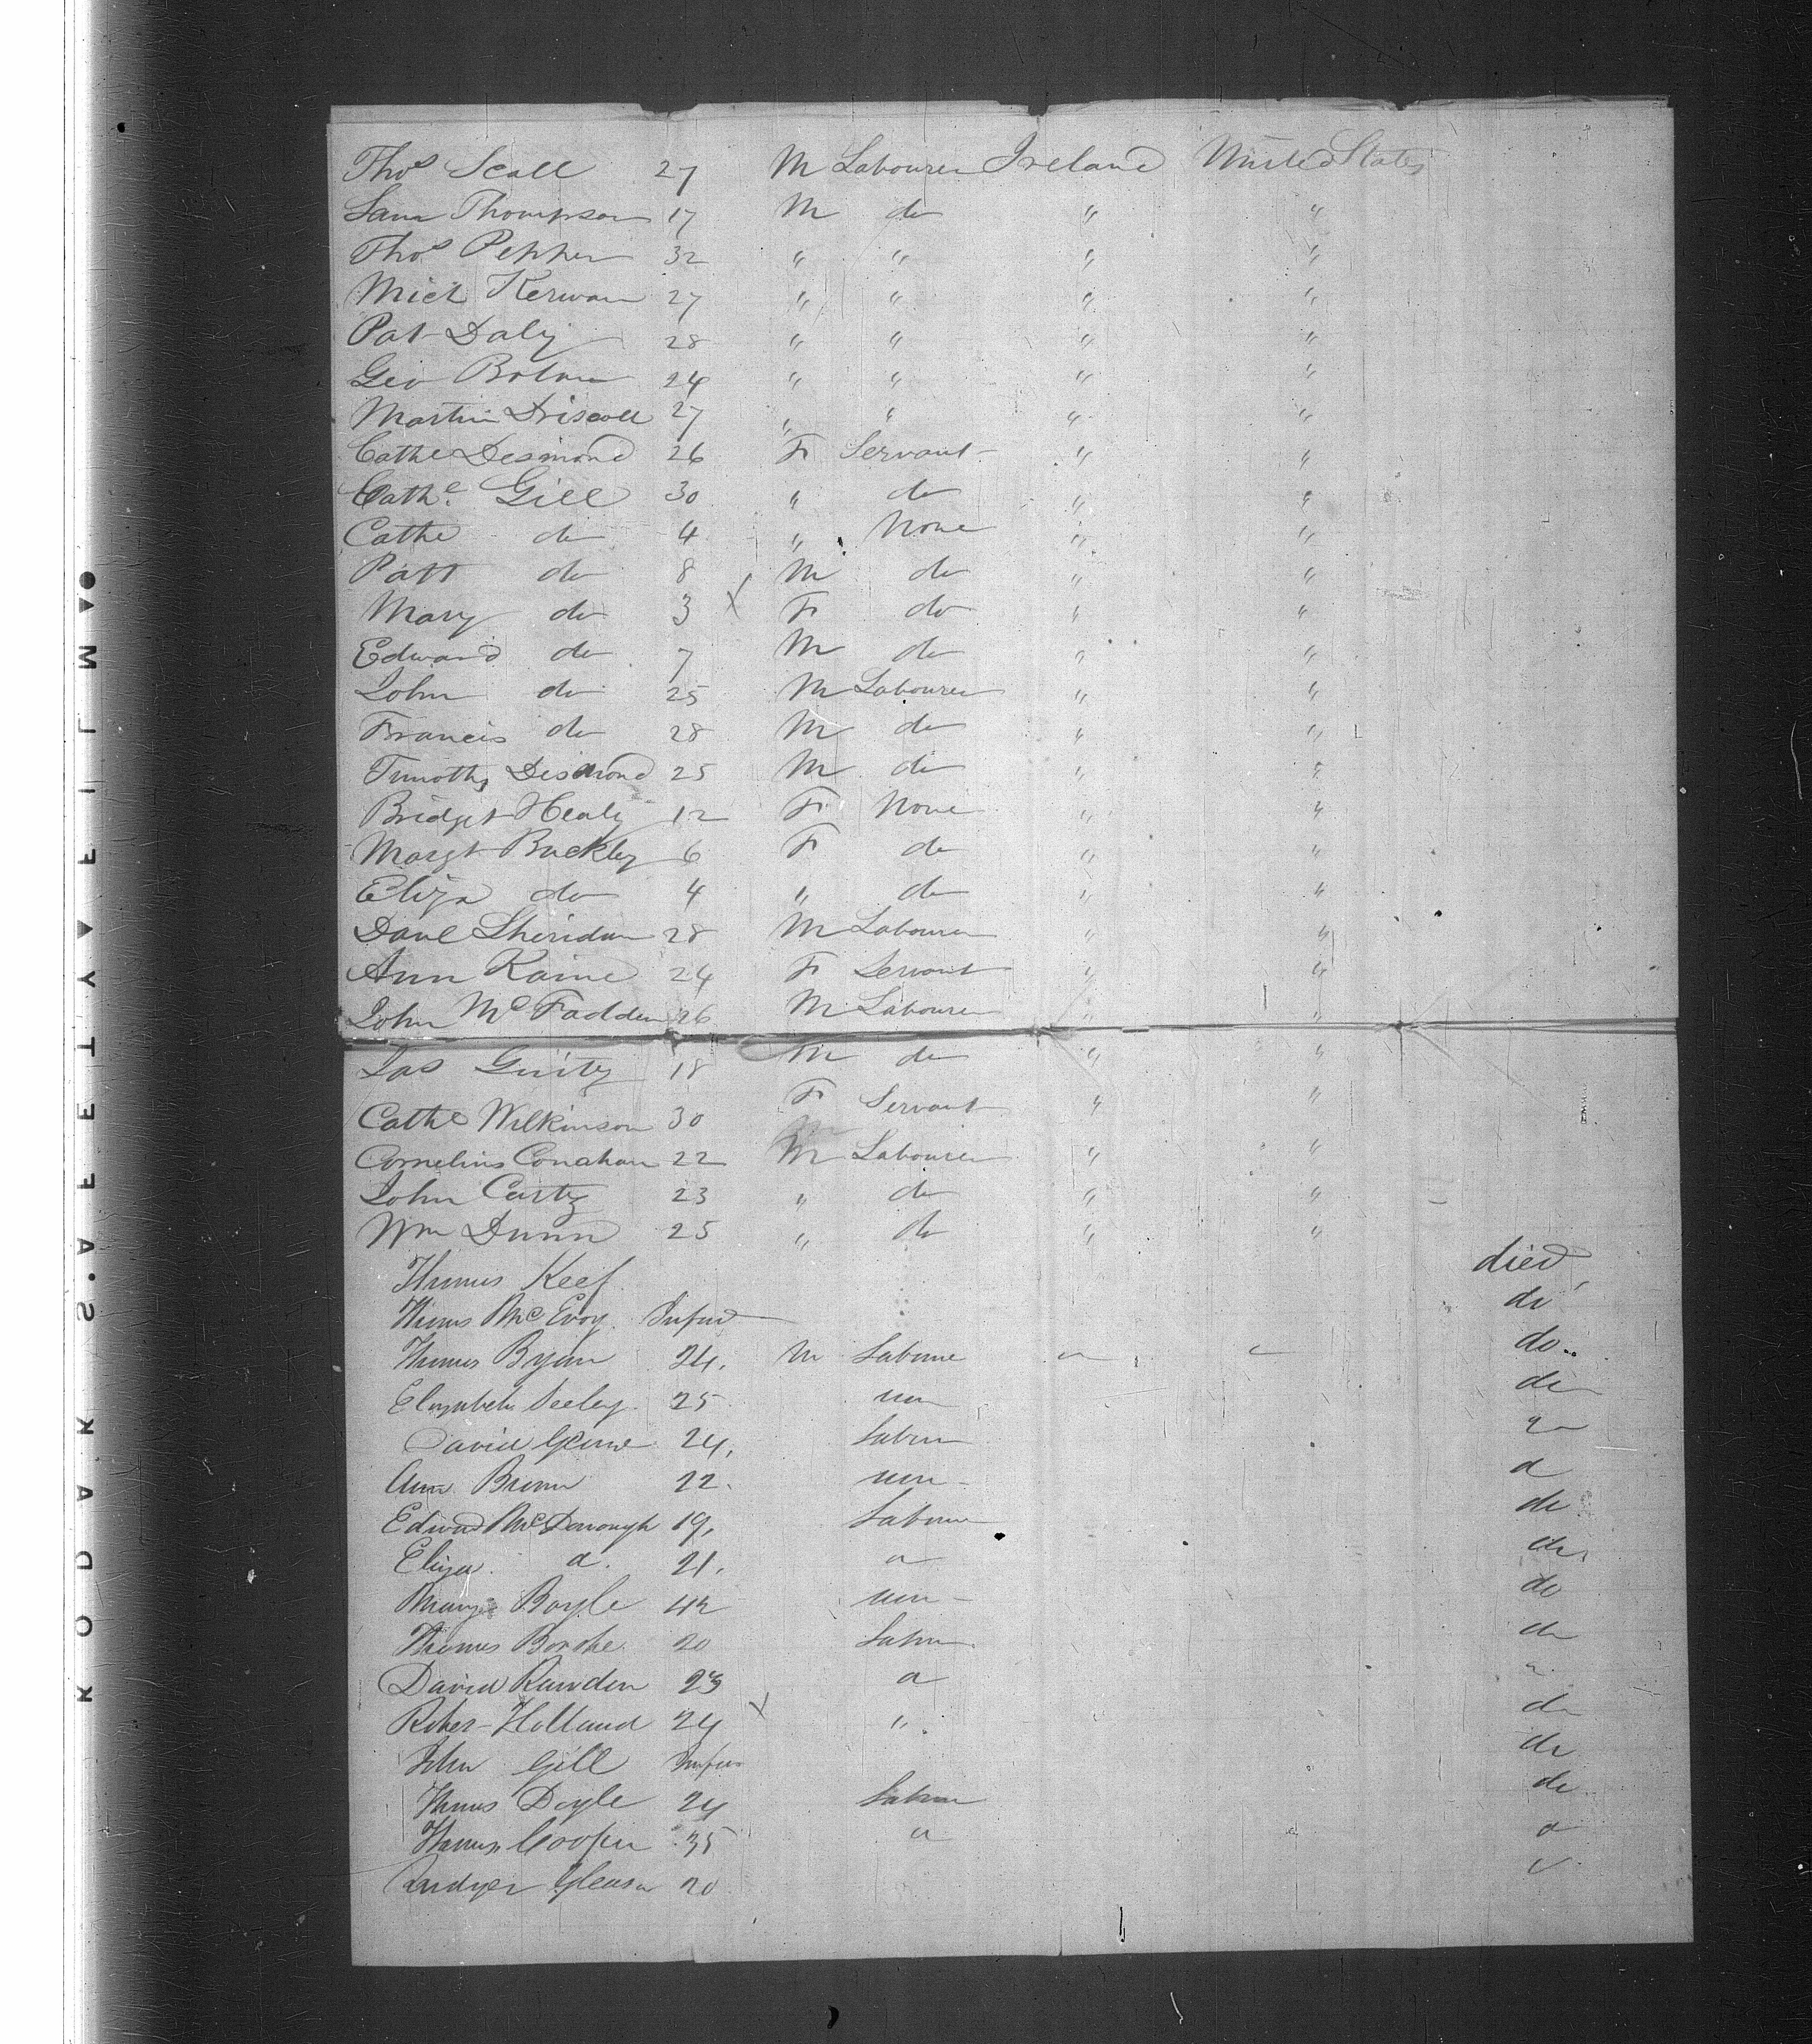 Thos Scall 27 M Labourer Ireland United States
Saml Thompson 17 M do " "
Thos Pepper 32 " " " "
Mich Kerwan 27 " " " "
Pat Daly 28 " " " "
Geo 24 " " " "
Martin Driscoll 27 " " " "
Cathe Desmond 26 F Servant " "
Cathe. Gill 30 " do " "
Cathe do 4 " None " "
Patt do 8 M do " "
Mary do 3 X F do " "
Edward do 7 M do " "
John do 25 M Labourer " "
Francis do 28 M do " "
Timothy Desmond 25 M do " "
Bridget Healy 12 F None " "
Margt Buckley 6 F do " "
Eliza do 4 " do " "
Danl Sheridan 28 M Labourer " "
Ann Kaine 24 F Servant " "
John McFadden 26 M Labourer " "
Jas Ginty 18 M do " "
Cathe Wilkinson 30 F Servant " "
Cornelius Conahan 22 M Labourer " "
John Carty 23 " do " "
Wm Dunn 25 " do " "
Thomas Keef died
McEvoy Infant do
Thomas Ryan 24. M Laborer do
Elizabeth Seeley 25 do
David 24,
Ann Brown 22.
Edward McDonough 19, Laborer do
Eliza do 21, do
Boyle 42 do
Thomas 20 do
David Rawden 23
Robert Holland 24 X " do
John Gill Infant do
Thomas Doyle 24 Laborer do
Thomas Cooper 35
Gleason 20